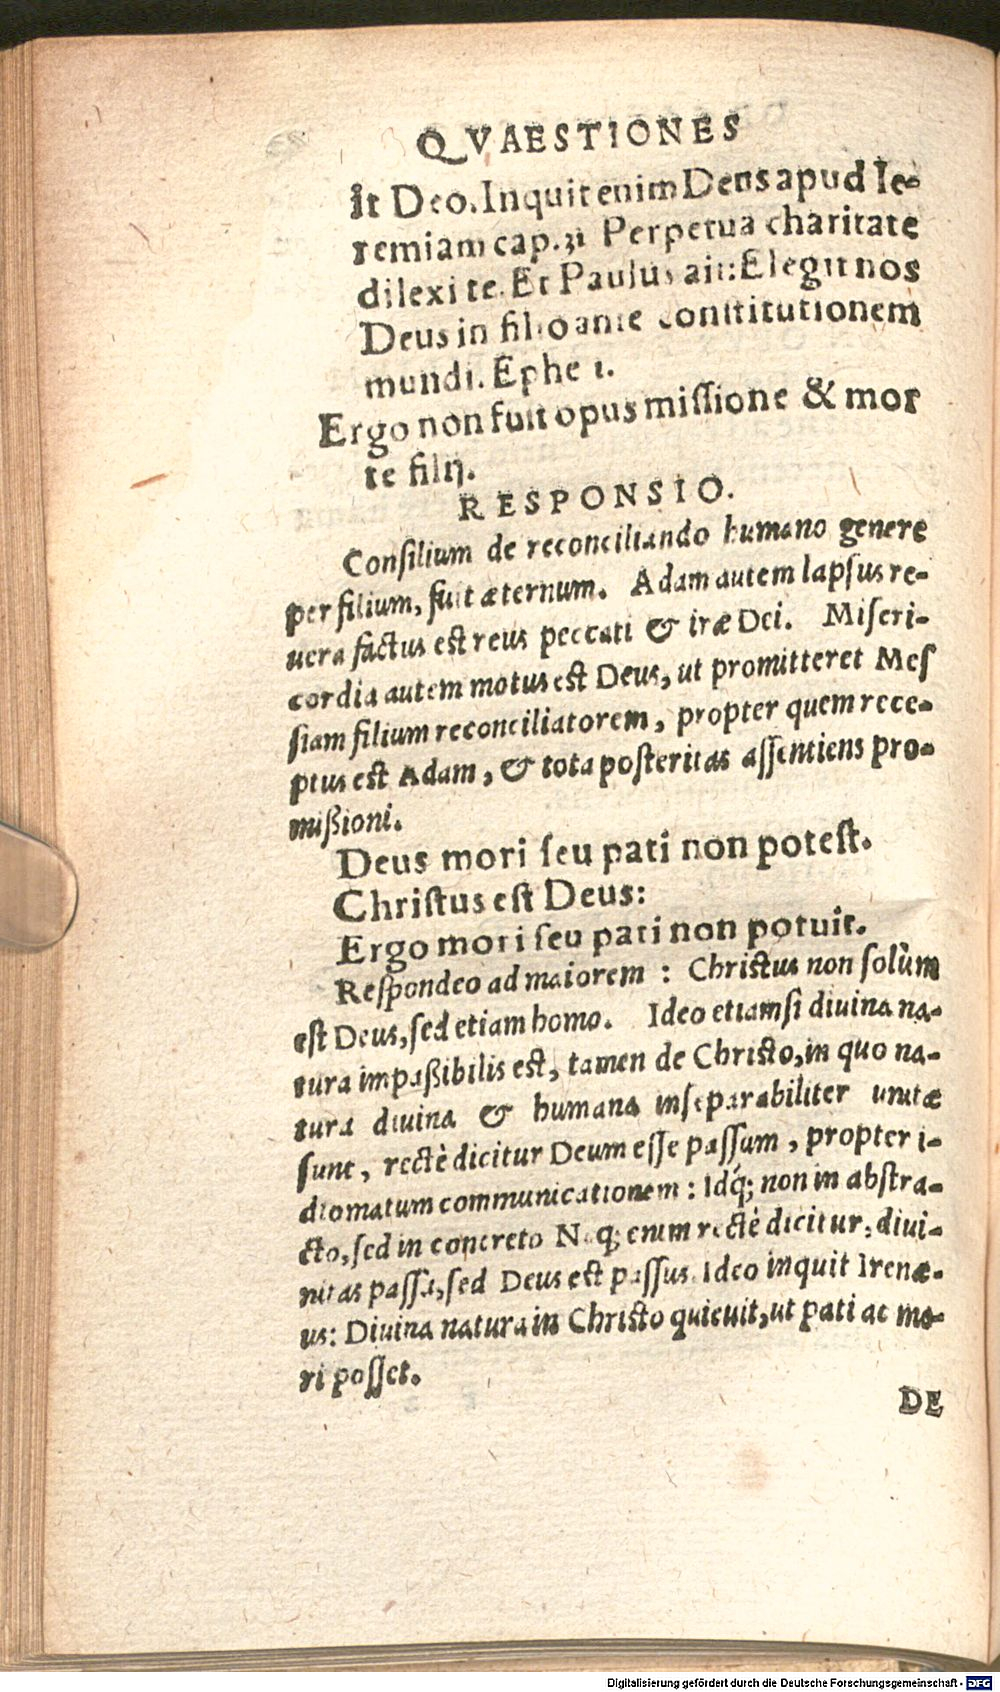 QVAESTIONES
it Deo. Inquit enim Deus apud Ie-
remiam cap. 31 Perpetua charitate
dilexi te. Et Paulus ait: Elegit nos
Deus in filio ante constitutionem
mundi. Ephe 1.
Ergo non fuit opus missione & mor
te filij.
RESPONSIO.
Consilium de reconciliando humano genere
per filium, fuit æternum. Adam autem lapsus re-
uera factus est reus peccati & iræ Dei. Miseri-
cordia autem motus est Deus, ut promitteret Mes
siam filium reconciliatorem, propter quem rece-
ptus est Adam, & tota posteritas assentiens pro-
mißioni.
Deus mori seu pati non potest.
Christus est Deus:
Ergo mori seu pati non potuit.
Respondeo ad maiorem : Christus non solùm
est Deus, sed etiam homo. Ideo etiamsi diuina na-
tura impaßibilis est, tamen de Christo, in quo na-
tura diuina & humana inseparabiliter unitæ
sunt, rectè dicitur Deum esse passum, propter i-
diomatum communicationem : Idq́; non in abstra-
cto, sed in concreto Neq; enim rectè dicitur: diui-
nitas passa, sed Deus est passus. Ideo inquit Irenæ-
us: Diuina natura in Christo quieuit, ut pati ac mo-
ri posset.
DE
Digitalisierung gefördert durch die Deutsche Forschungsgemeinschaft - DFG